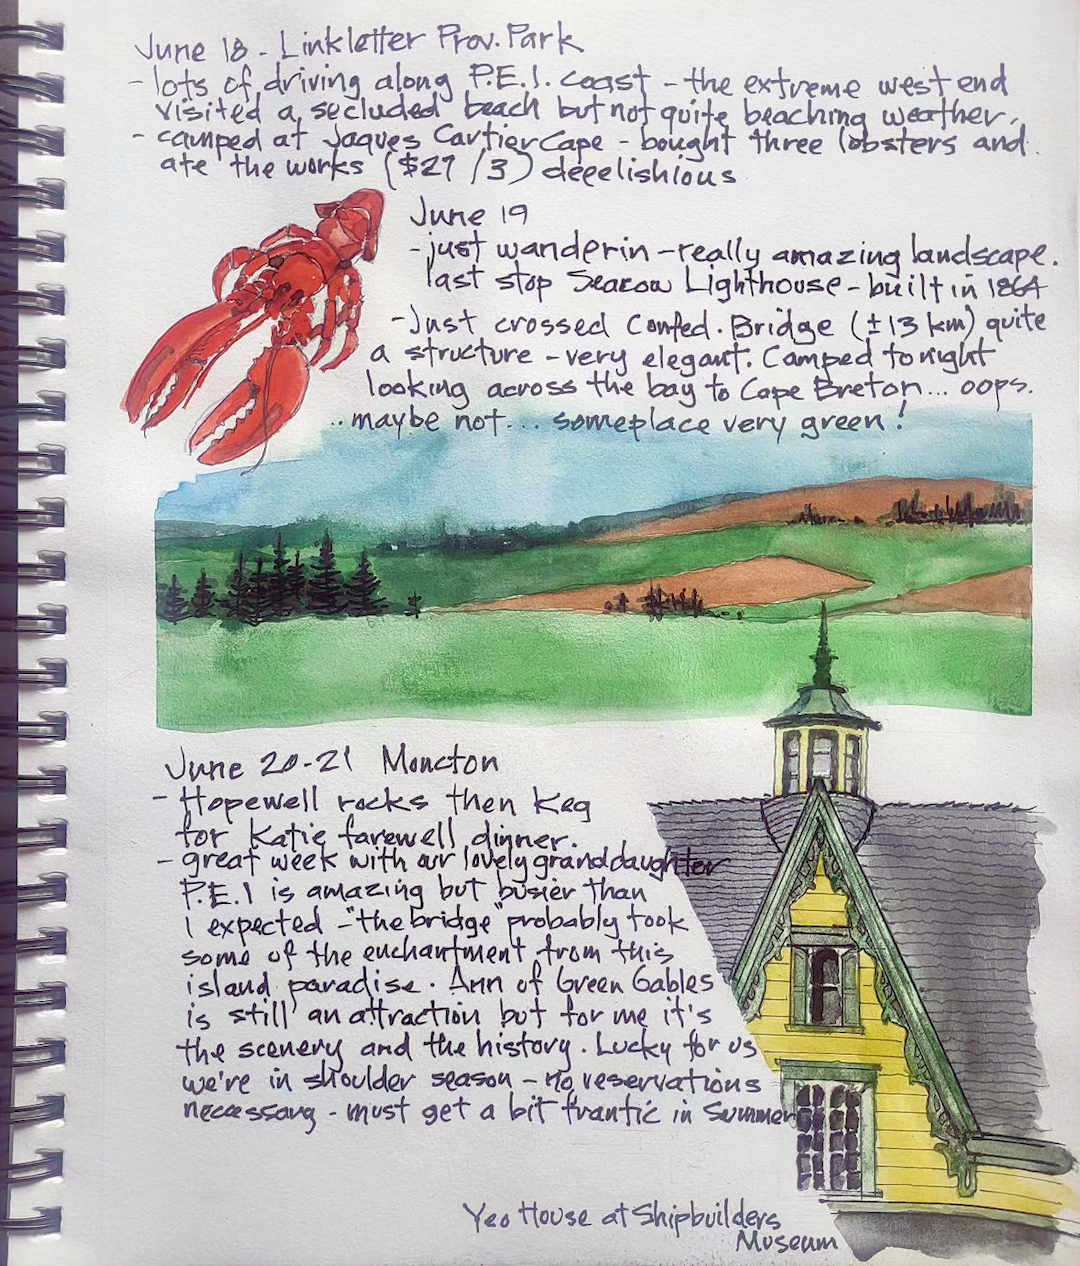 June 18 - Linkletter Prov. Park
- lots of driving along P.E.I. coast - the extreme west end
visited a secluded beach but not quite beaching weather.
- camped at Jaques Cartier Cape - bought three lobsters and
ate the works ($27 /3) deeelishious
June 19
- just wanderin - really amazing landscape.
last stop Seacow Lighthouse - built in 1864
- Just crossed Confed. Bridge (±13 km) quite
a structure - very elegant. Camped tonight
looking across the bay to Cape Breton... oops.
.. maybe not... someplace very green!
June 20-21 Moncton
- Hopewell rocks then Keg
for Katie farewell dinner.
- great week with our lovely granddaughter
P.E.I is amazing but busier than
I expected - "the bridge" probably took
some of the enchantment from this
island paradise. Ann of Green Gables
is still an attraction but for me it's
the scenery and the history. Lucky for us
we're in shoulder season - no reservations
necessary - must get a bit frantic in Summer
Yeo House at Shipbuilders
Museum